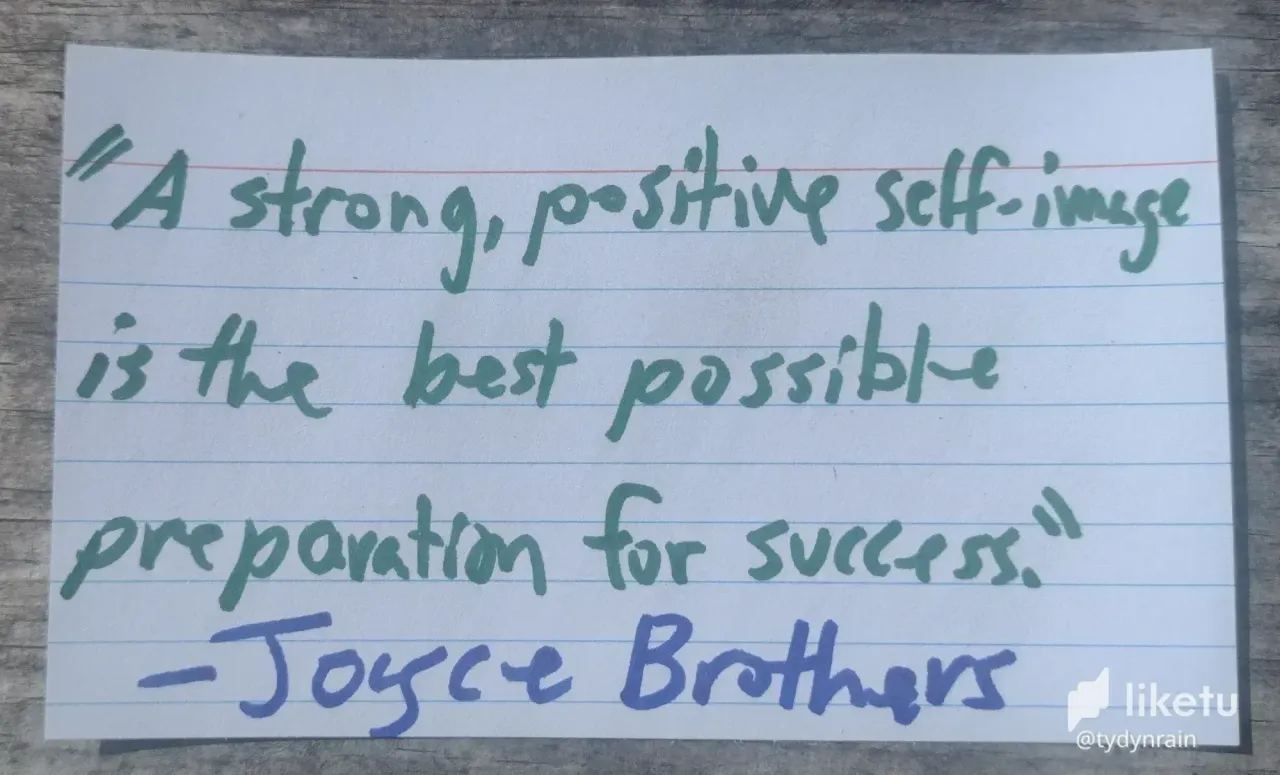 "A strong, positive self-image
is the best possible
preparation for success."
- Joyce Brothers
liketu
@tydynrain